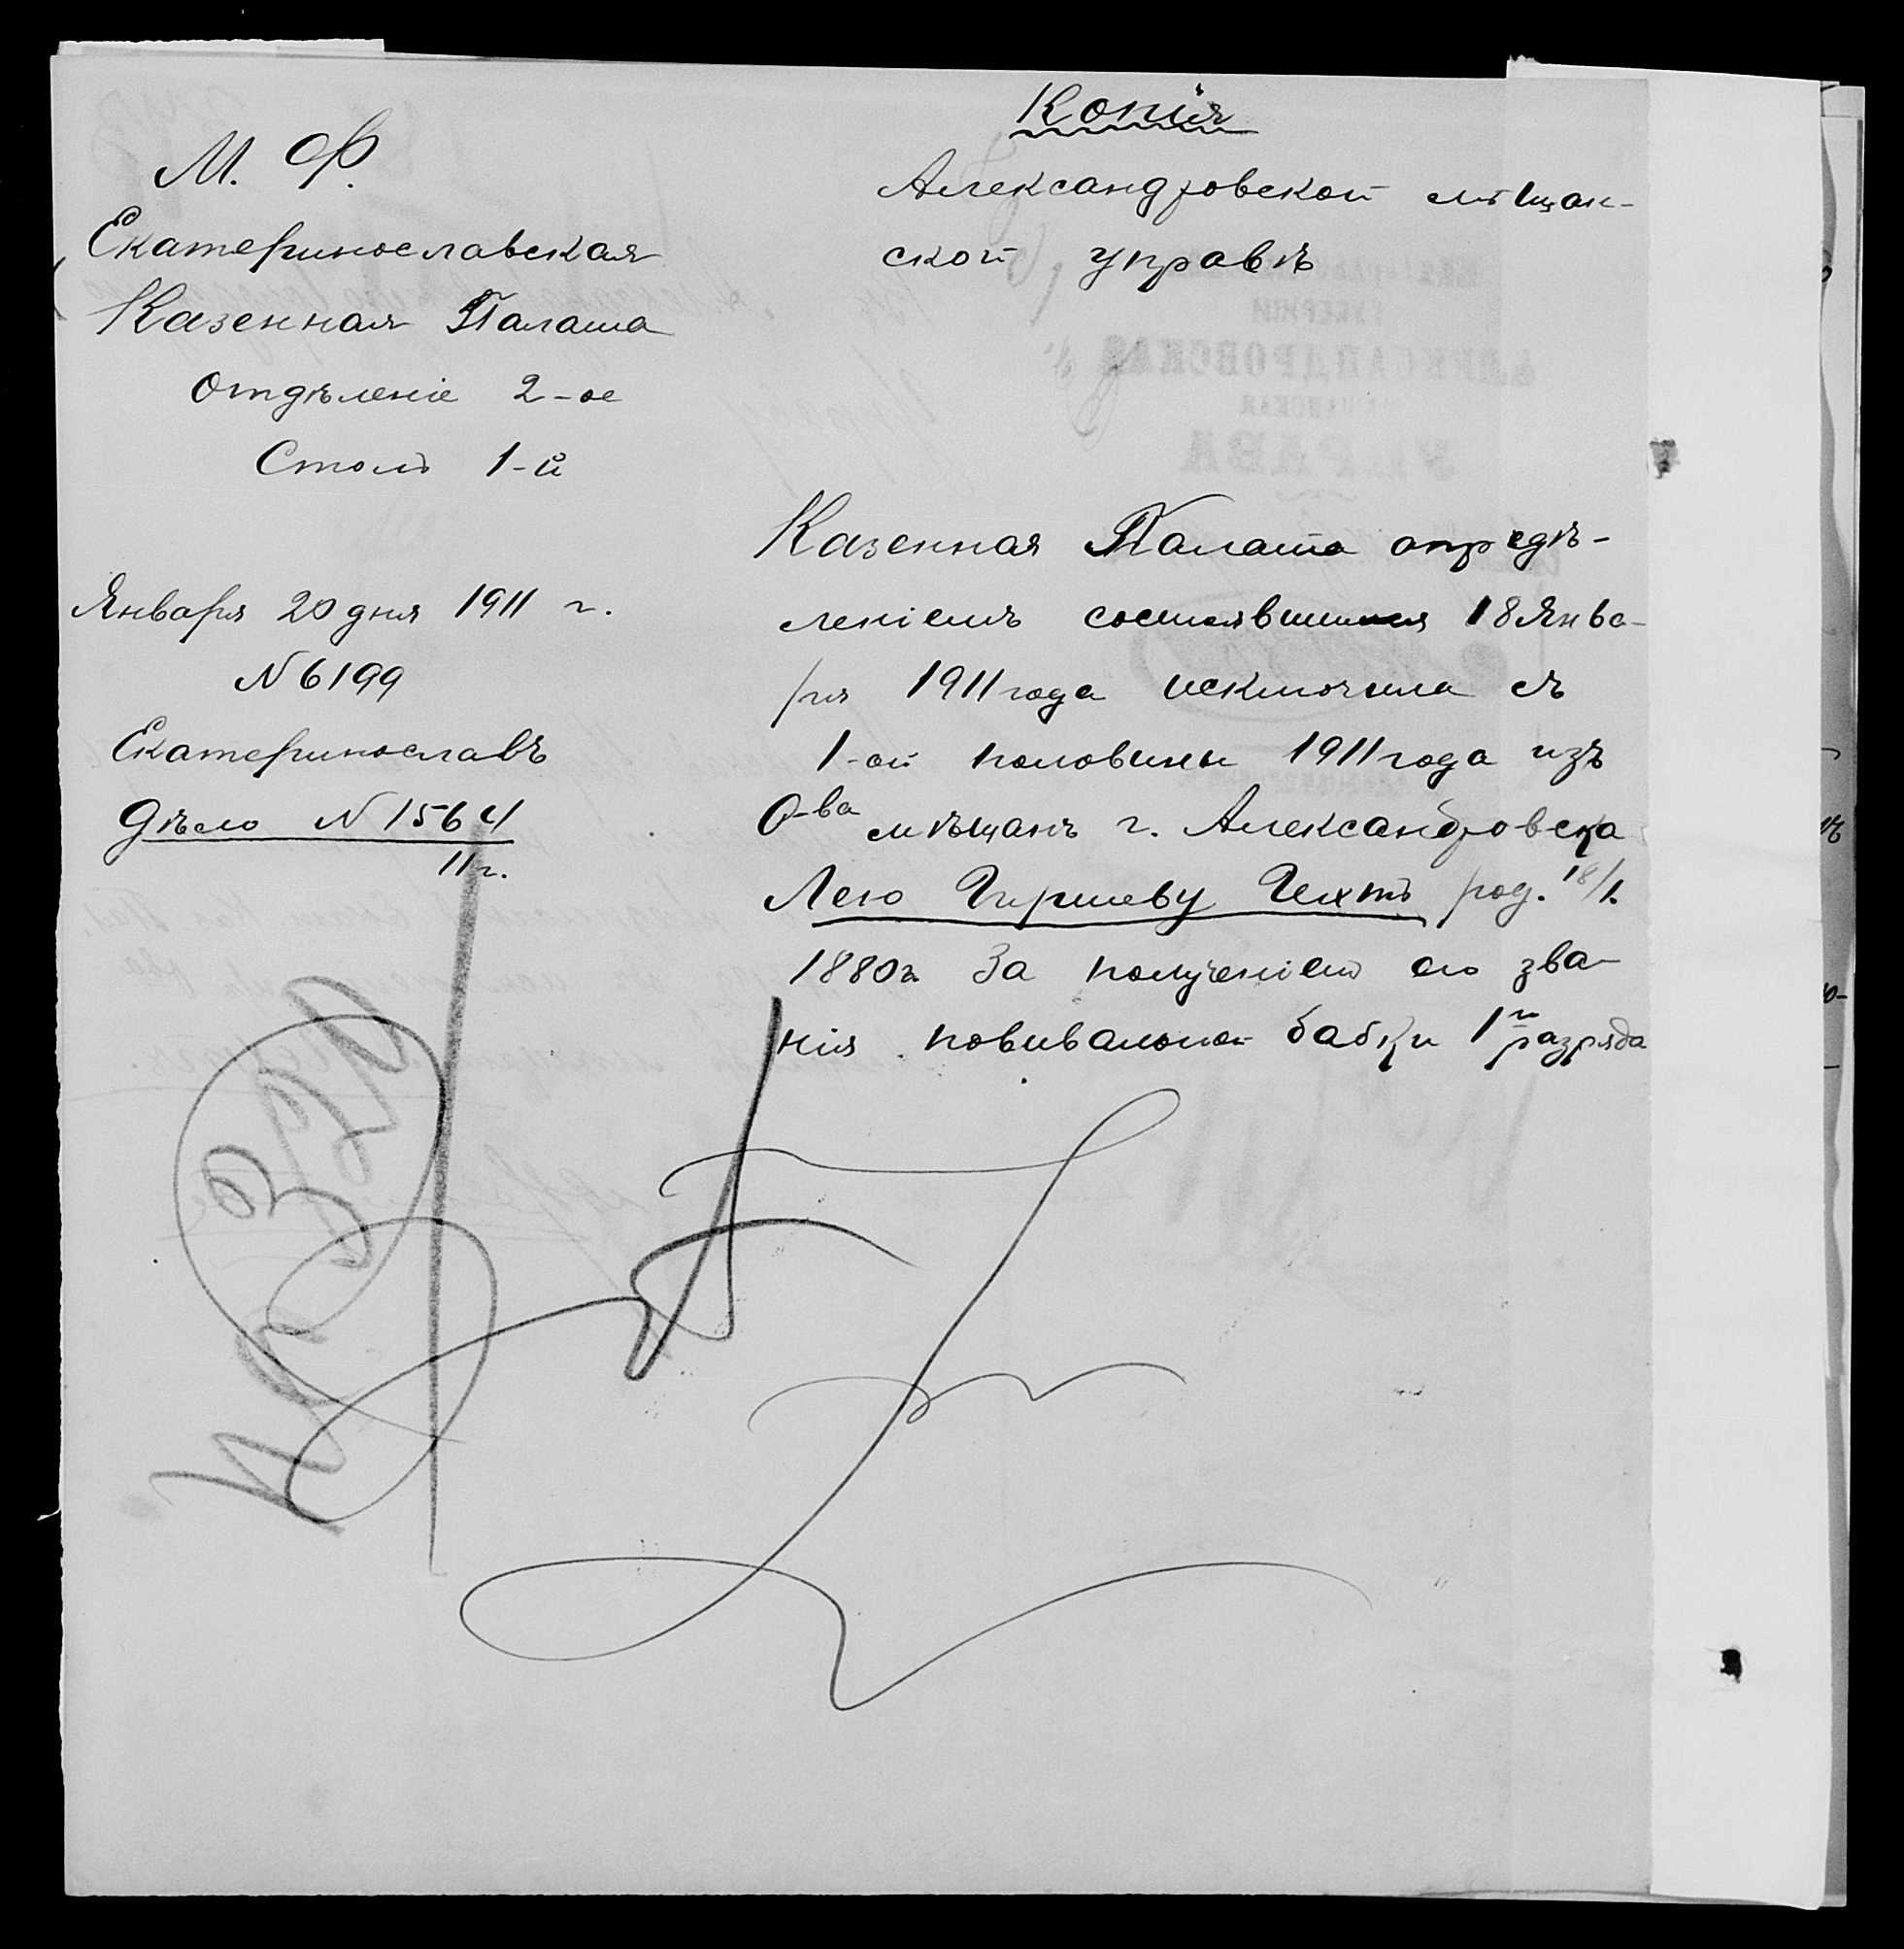 Копія
М. Ф.
Екатеринославская
Казенная Палата
Отдѣленіе 2-ое
Столъ 1-й
Января 20 дня 1911 г.
N 6199
Екатеринославъ
Дѣло N 1564
11 г.
Александровской мѣщан-
ской управѣ
Казенная Палата опредѣ-
леніемъ состоявшимся 18 Янва-
ря 1911 года исключила съ
1-ой половины 1911 года изъ
О-ва мѣщанъ г. Александровска
Лею Гиршеву Гехтъ род. 18/1.
1880 г. За полученіемъ ею зва-
нія повивальной бабки 1 й разряда